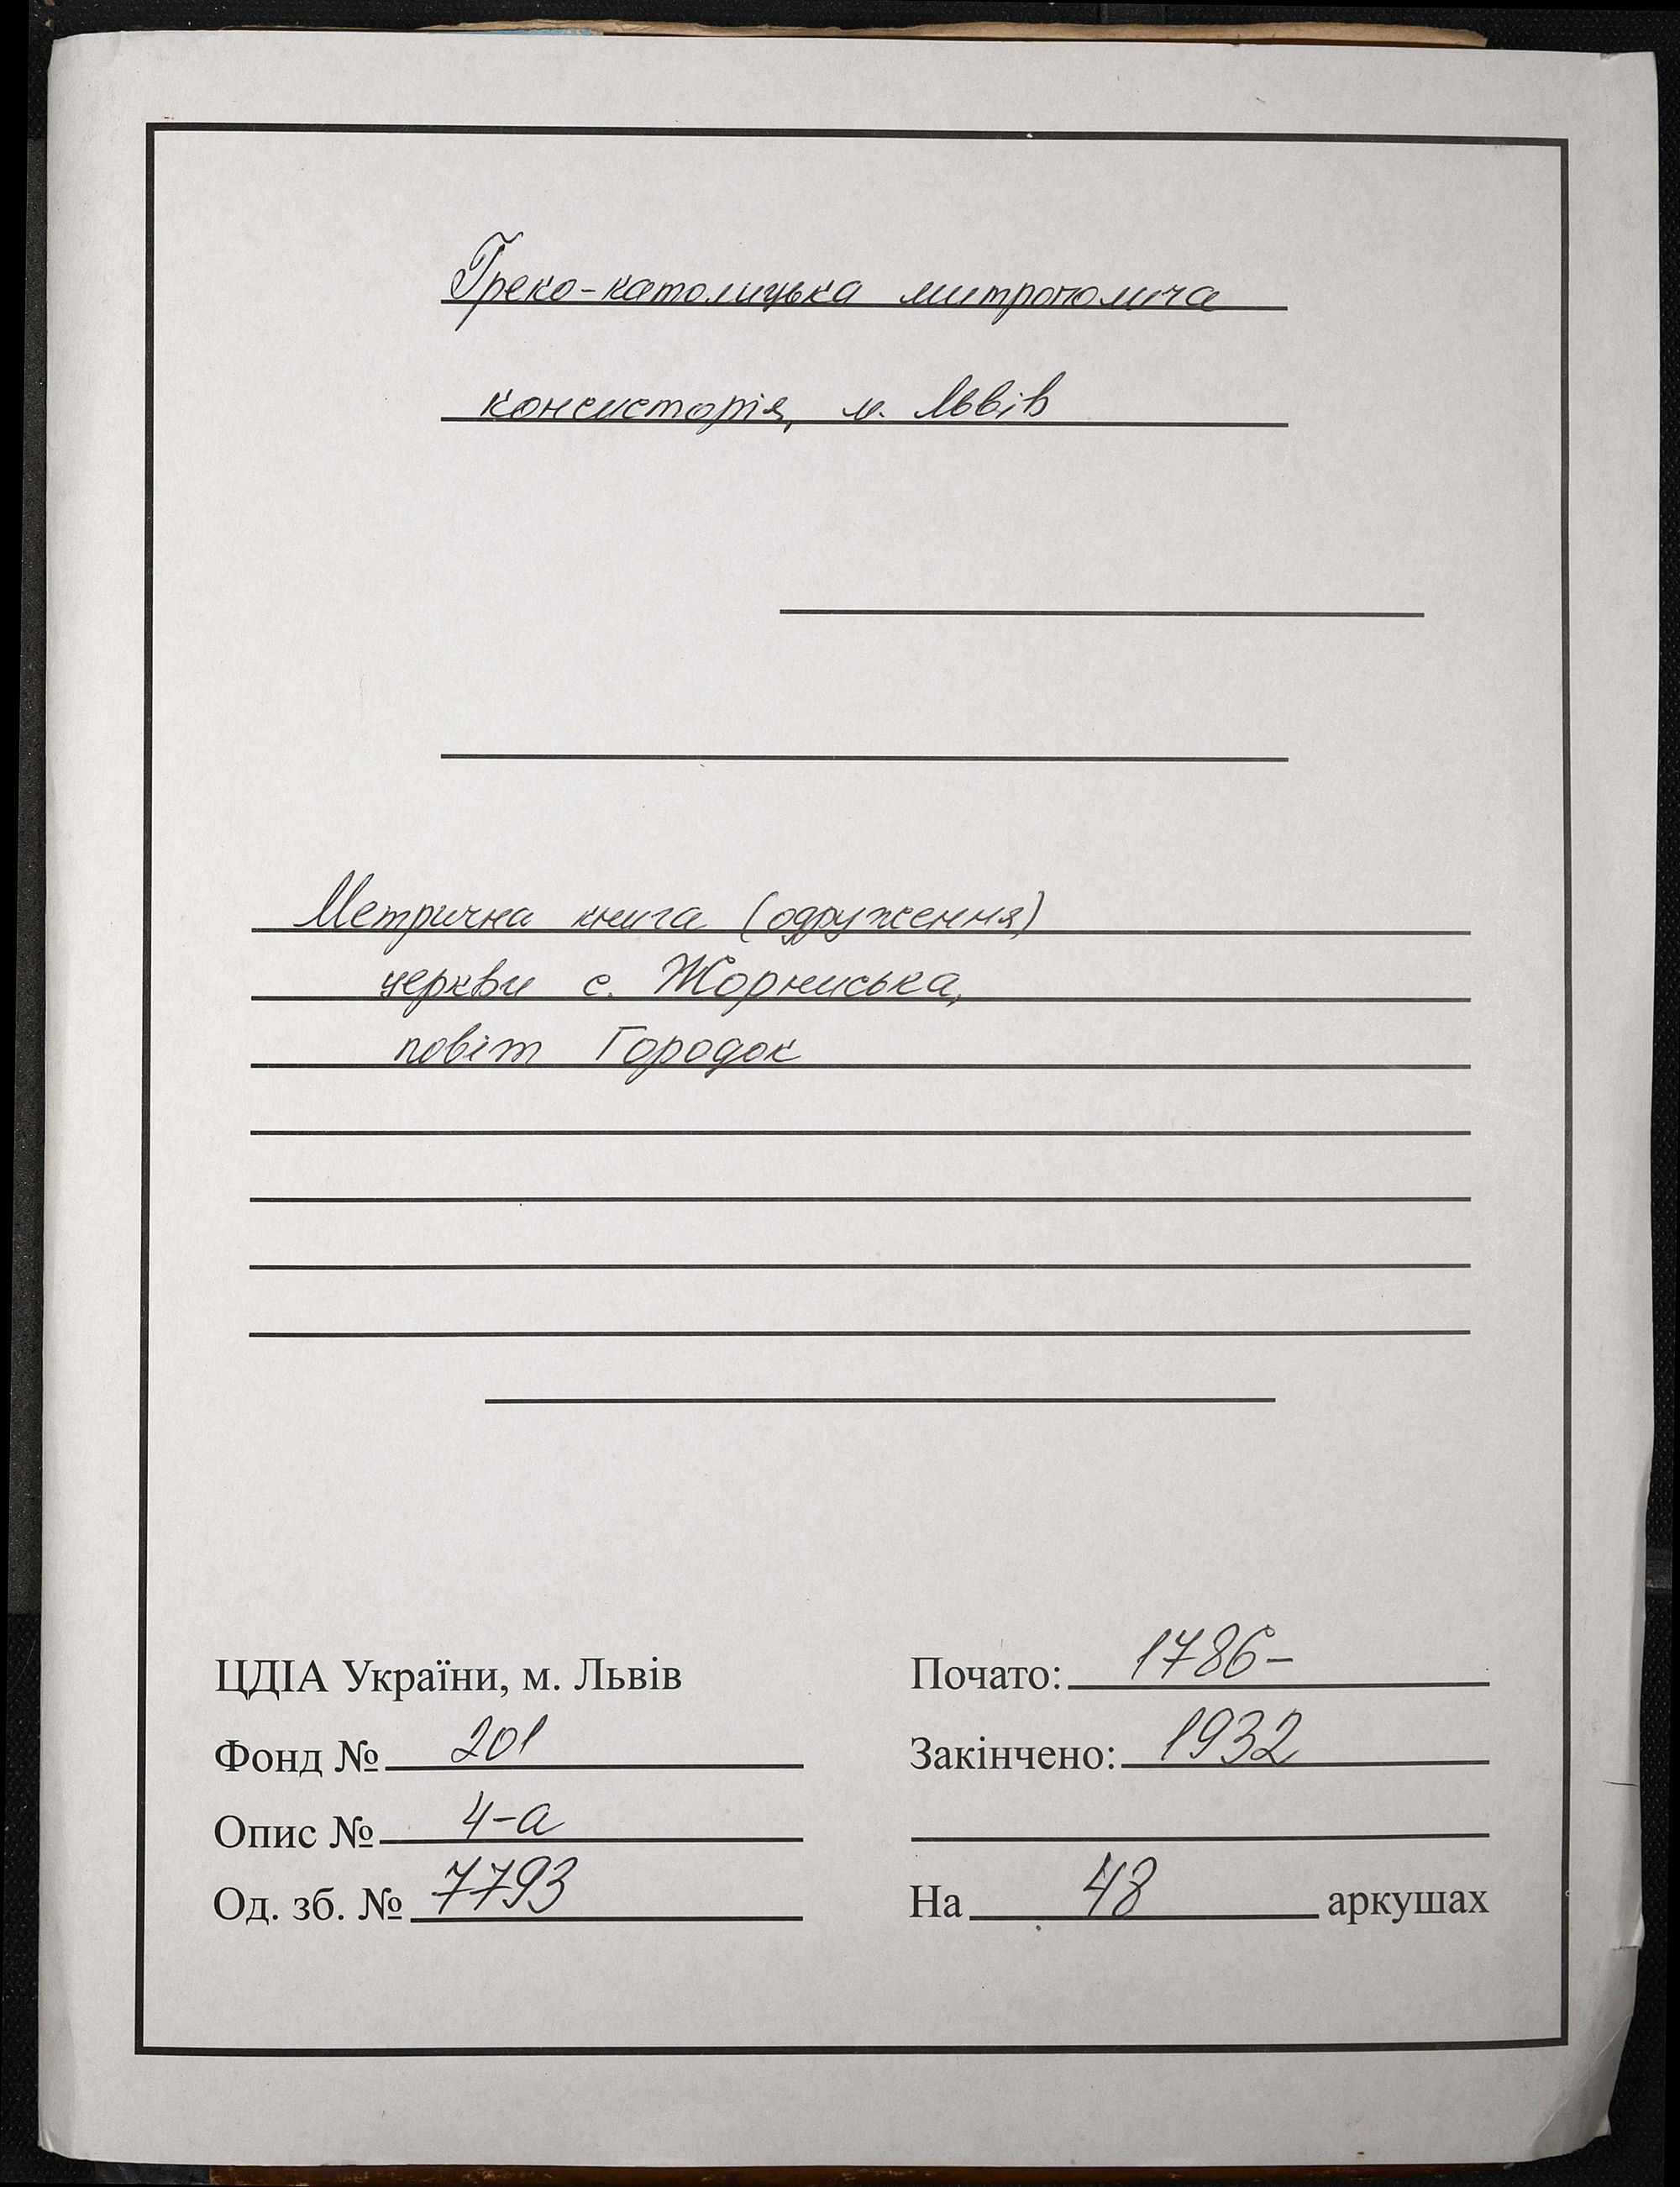 Греко-католицька митрополича
консисторія, м. Львів
Метрична книга (одруження)
церкви с. Жорниська,
повіт Городок
ЦДІА України, м. Львів
Фонд № 201
Опис № 4-а
Од. зб. № 7793
Почато: 1786-
Закінчено: 1932
На 48 аркушах